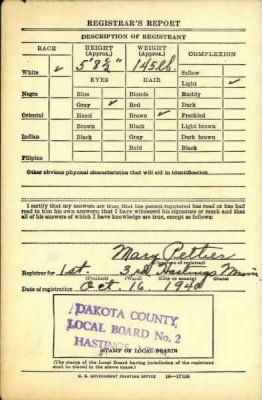 REGISTRAR'S REPORT
DESCRIPTION OF REGISTRANT
RACE HEIGHT (Approx.) WEIGHT (Approx.) COMPLEXION
5' 8½" 145 lb.
White ✓ EYES HAIR Sallow
Light ✓
Negro Blue Blonde Ruddy
Gray ✓ Red Dark
Oriental Hazel Brown ✓ Freckled
Brown Black Light brown
Indian Black Gray Dark brown
Bald Black
Filipino
Other obvious physical characteristics that will aid in identification
I certify that my answers are true; that the person registered has read or has
had read to him his own answers; that I have witnessed his signature or mark and that
all of his answers of which I have knowledge are true, except as follows:
Mary Peltier
(Signature of registrar)
Registrar for 1st. 3rd Hastings Minn.
(Precinct) (Ward) (State)
Date of registration Oct. 16 1940
DAKOTA COUNTY
LOCAL BOARD No. 2
HASTINGS
(STAMP OF LOCAL BOARD)
(The stamp of the Local Board having jurisdiction of the registrant
shall be placed in the above space.)
U. S. GOVERNMENT PRINTING OFFICE 16—17105